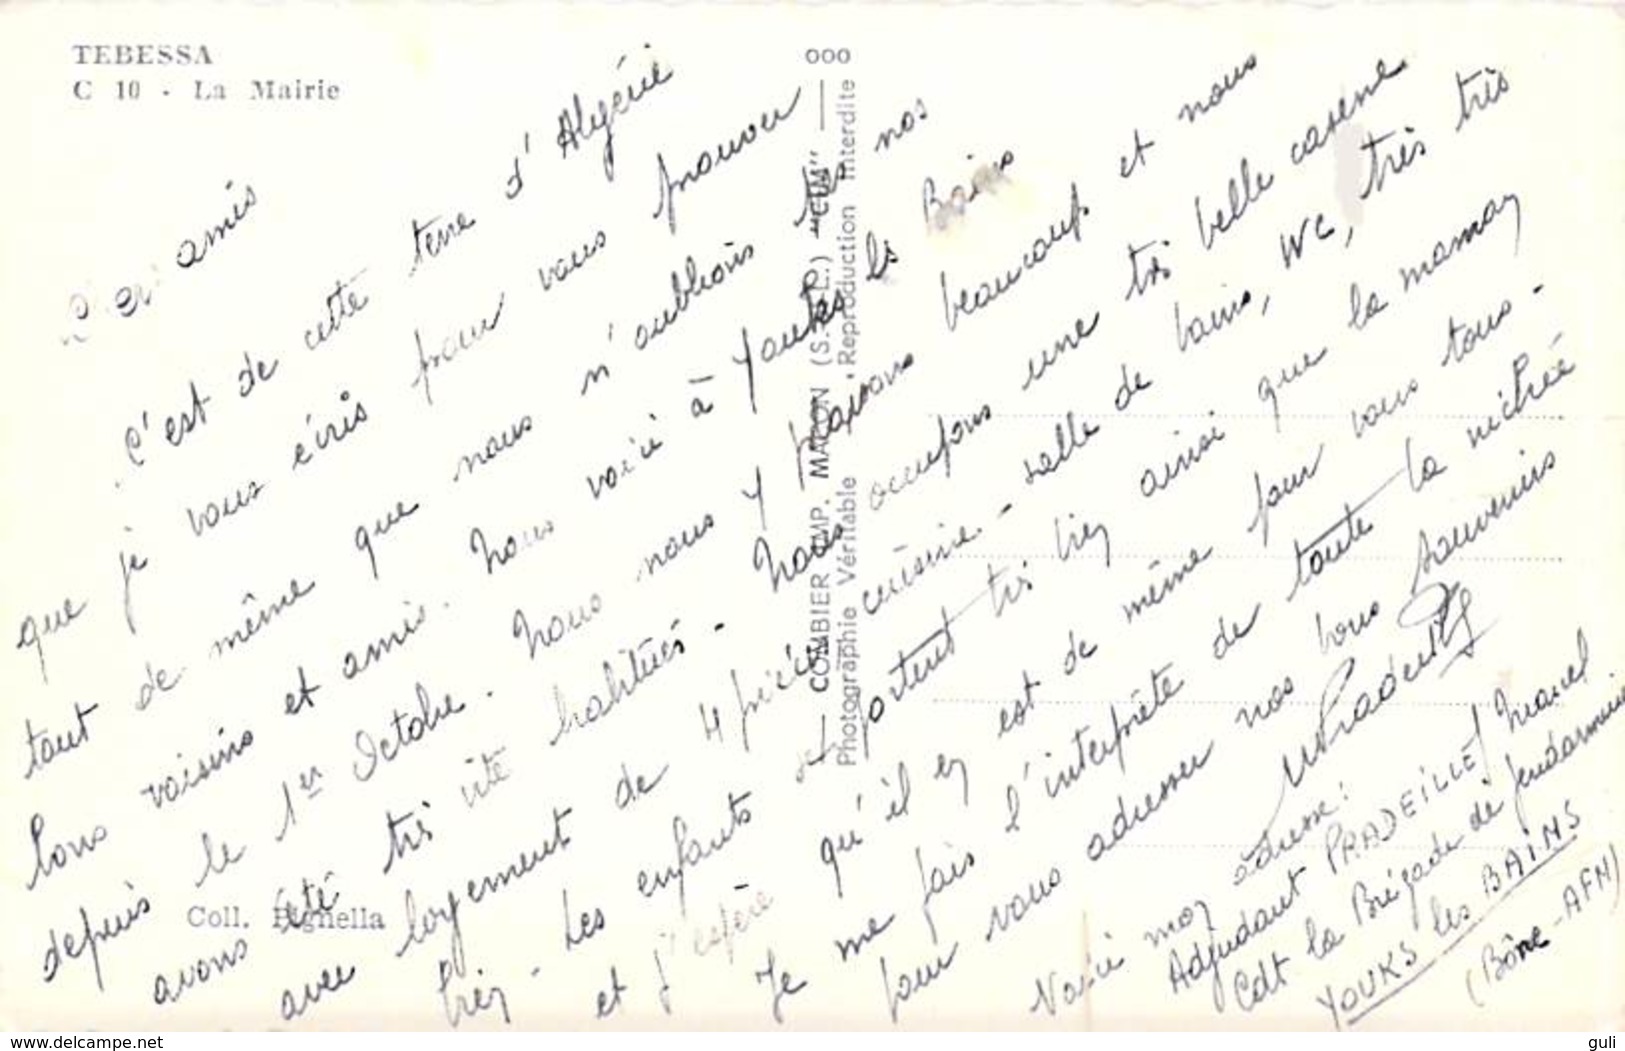 TEBESSA
C 10 - La Mairie
Chers amis
C'est de cette terre d'Algérie
que je vous écris pour vous prouver
tout de même que nous n'oublions pas nos
bons voisins et amis. Nous voici à Youks les Bains
depuis le 1er Octobre. Nous nous y plaisons beaucoup et nous
avons été très vite habitués - Nous occupons une très belle caserne
avec logement de 4 pièces cuisine - salle de bains, WC, très très
bien - Les enfants se portent très bien ainsi que la maman
et j'espère qu'il en est de même pour vous tous -
Je me fais l'interprète de toute la nichée
pour vous adresser nos bons souvenirs
MPradeille
Voici mon adresse :
Adjudant PRADEILLE Marcel
Cdt la Brigade de Gendarmerie
YOUKS les BAINS
(Bône - AFN)
Coll. Bignella
COMBIER IMP. MACON (S.-&-L.) "CIM"
Photographie Véritable . Reproduction Interdite
www.delcampe.net
guli